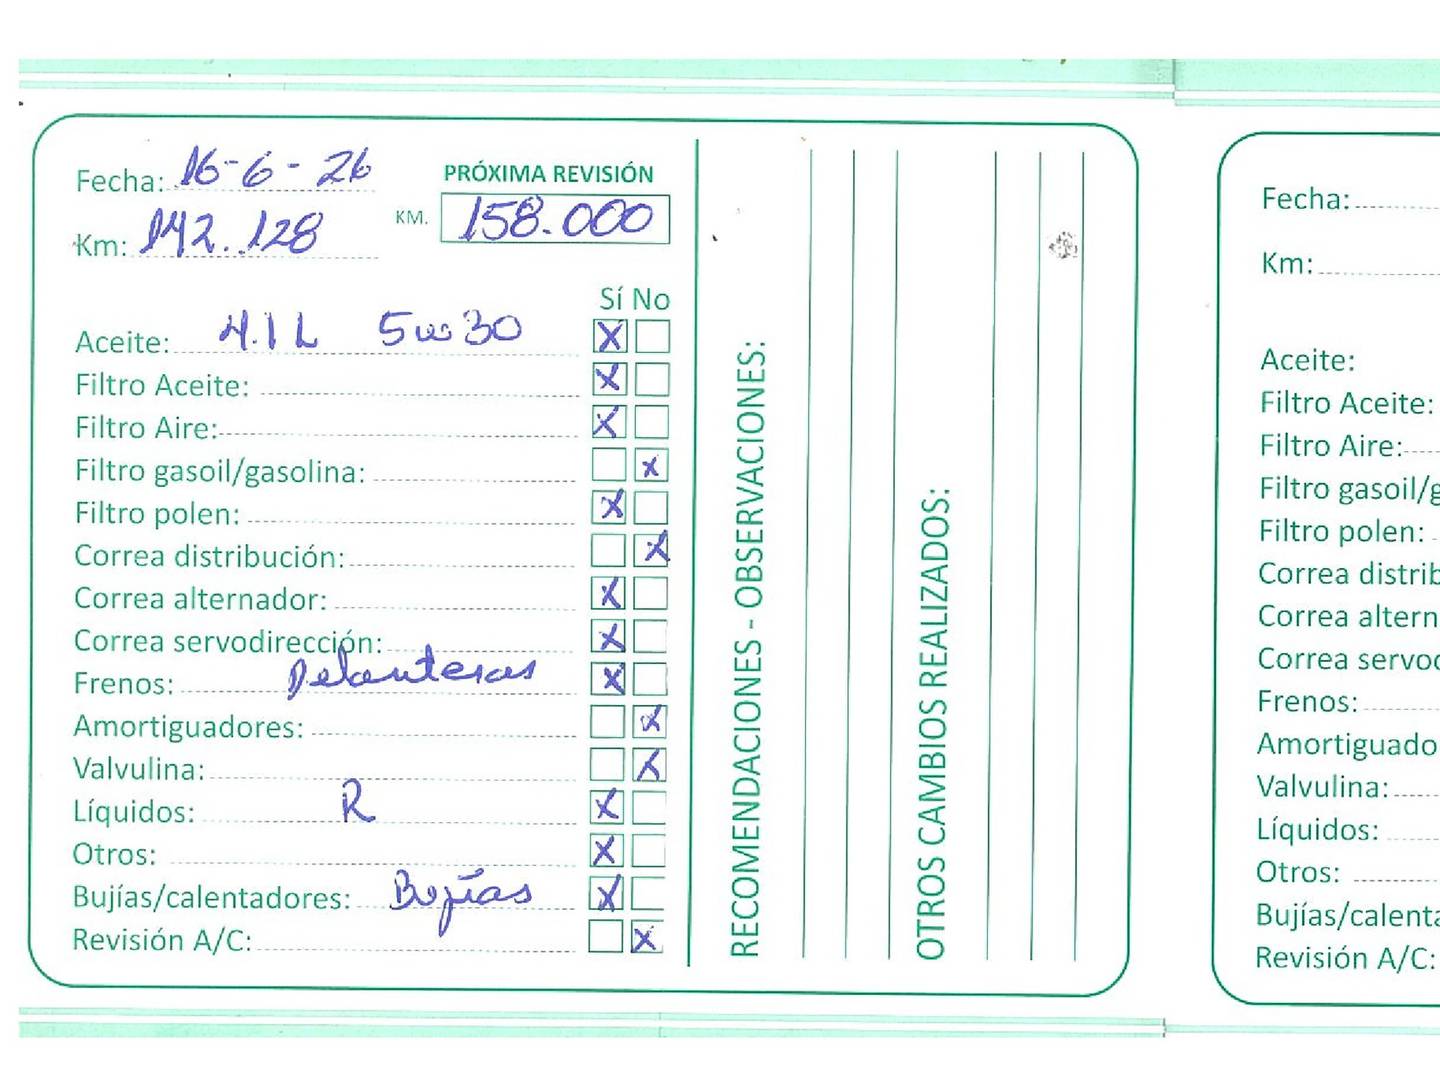 Fecha: 16-6-26
PRÓXIMA REVISIÓN
Km: 142.128
KM. 158.000
Sí No
Aceite: 4.1 L 5w30 X
Filtro Aceite: X
Filtro Aire: X
Filtro gasoil/gasolina: X
Filtro polen: X
Correa distribución: X
Correa alternador: X
Correa servodirección: X
Frenos: Delanteras X
Amortiguadores: X
Valvulina: X
Líquidos: R X
Otros: X
Bujías/calentadores: Bujías X
Revisión A/C: X
RECOMENDACIONES - OBSERVACIONES:
OTROS CAMBIOS REALIZADOS:
Fecha:
Km:
Aceite:
Filtro Aceite:
Filtro Aire:
Filtro gasoil/g
Filtro polen:
Correa distrib
Correa altern
Correa servod
Frenos:
Amortiguado
Valvulina:
Líquidos:
Otros:
Bujías/calenta
Revisión A/C: